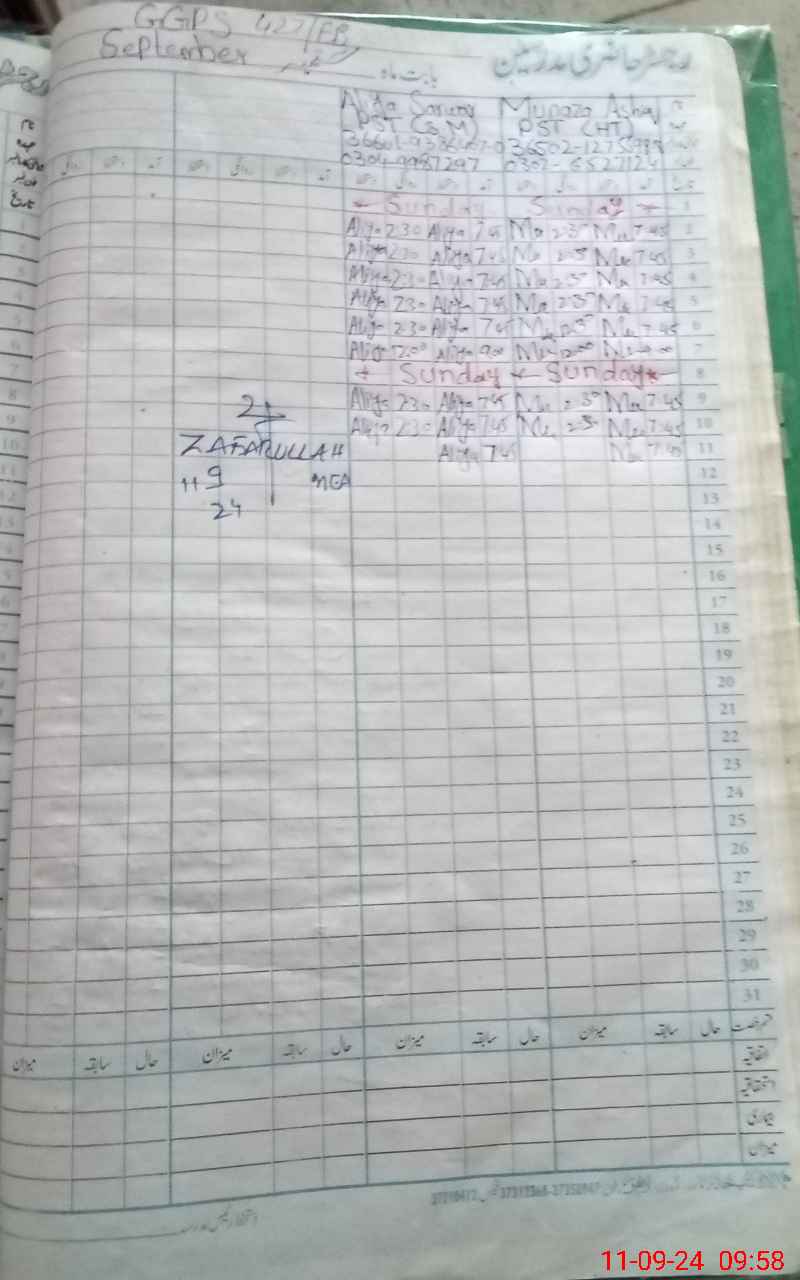 GGPS 427/EB
رجسٹر حاضری مدرسین
بابت ماہ
September ستمبر
Munaza Ashiq
PST (S.M) PST (HT)
0304-9987297 0302-6527124
1 Sunday Sunday
2 Aliya 2:30 Aliya 7:45 Mu 2:30 Mu 7:45
3 Aliya 2:30 Aliya 7:45 Mu 2:30 Mu 7:45
4 Aliya 2:30 Aliya 7:45 Mu 2:30 Mu 7:45
5 Aliya 2:30 Aliya 7:45 Mu 2:30 Mu 7:45
6 Aliya 2:30 Aliya 7:45 Mu 2:30 Mu 7:45
7 Aliya 12:00 Aliya 9:00 Mu 12:00
8 Sunday Sunday
9 Aliya 2:30 Aliya 7:45 Mu 2:30 Mu 7:45
10 Aliya 2:30 Aliya 7:45 Mu 2:30 Mu 7:45
11 Aliya 7:45 Mu 7:45
ZAFARULLAH
11 9 MEA
24
12
13
14
15
16
17
18
19
20
21
22
23
24
25
26
27
28
29
30
31
قسم رخصت حال سابقہ میزان حال سابقہ میزان حال سابقہ میزان حال سابقہ میزان
اتفاقیہ
استحقاقیہ
بیماری
میزان
11-09-24 09:58